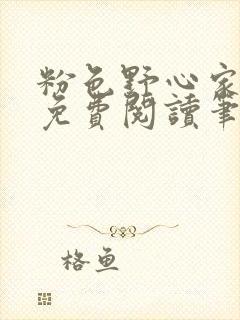 粉色野心家
免费閱讀筆
格鱼